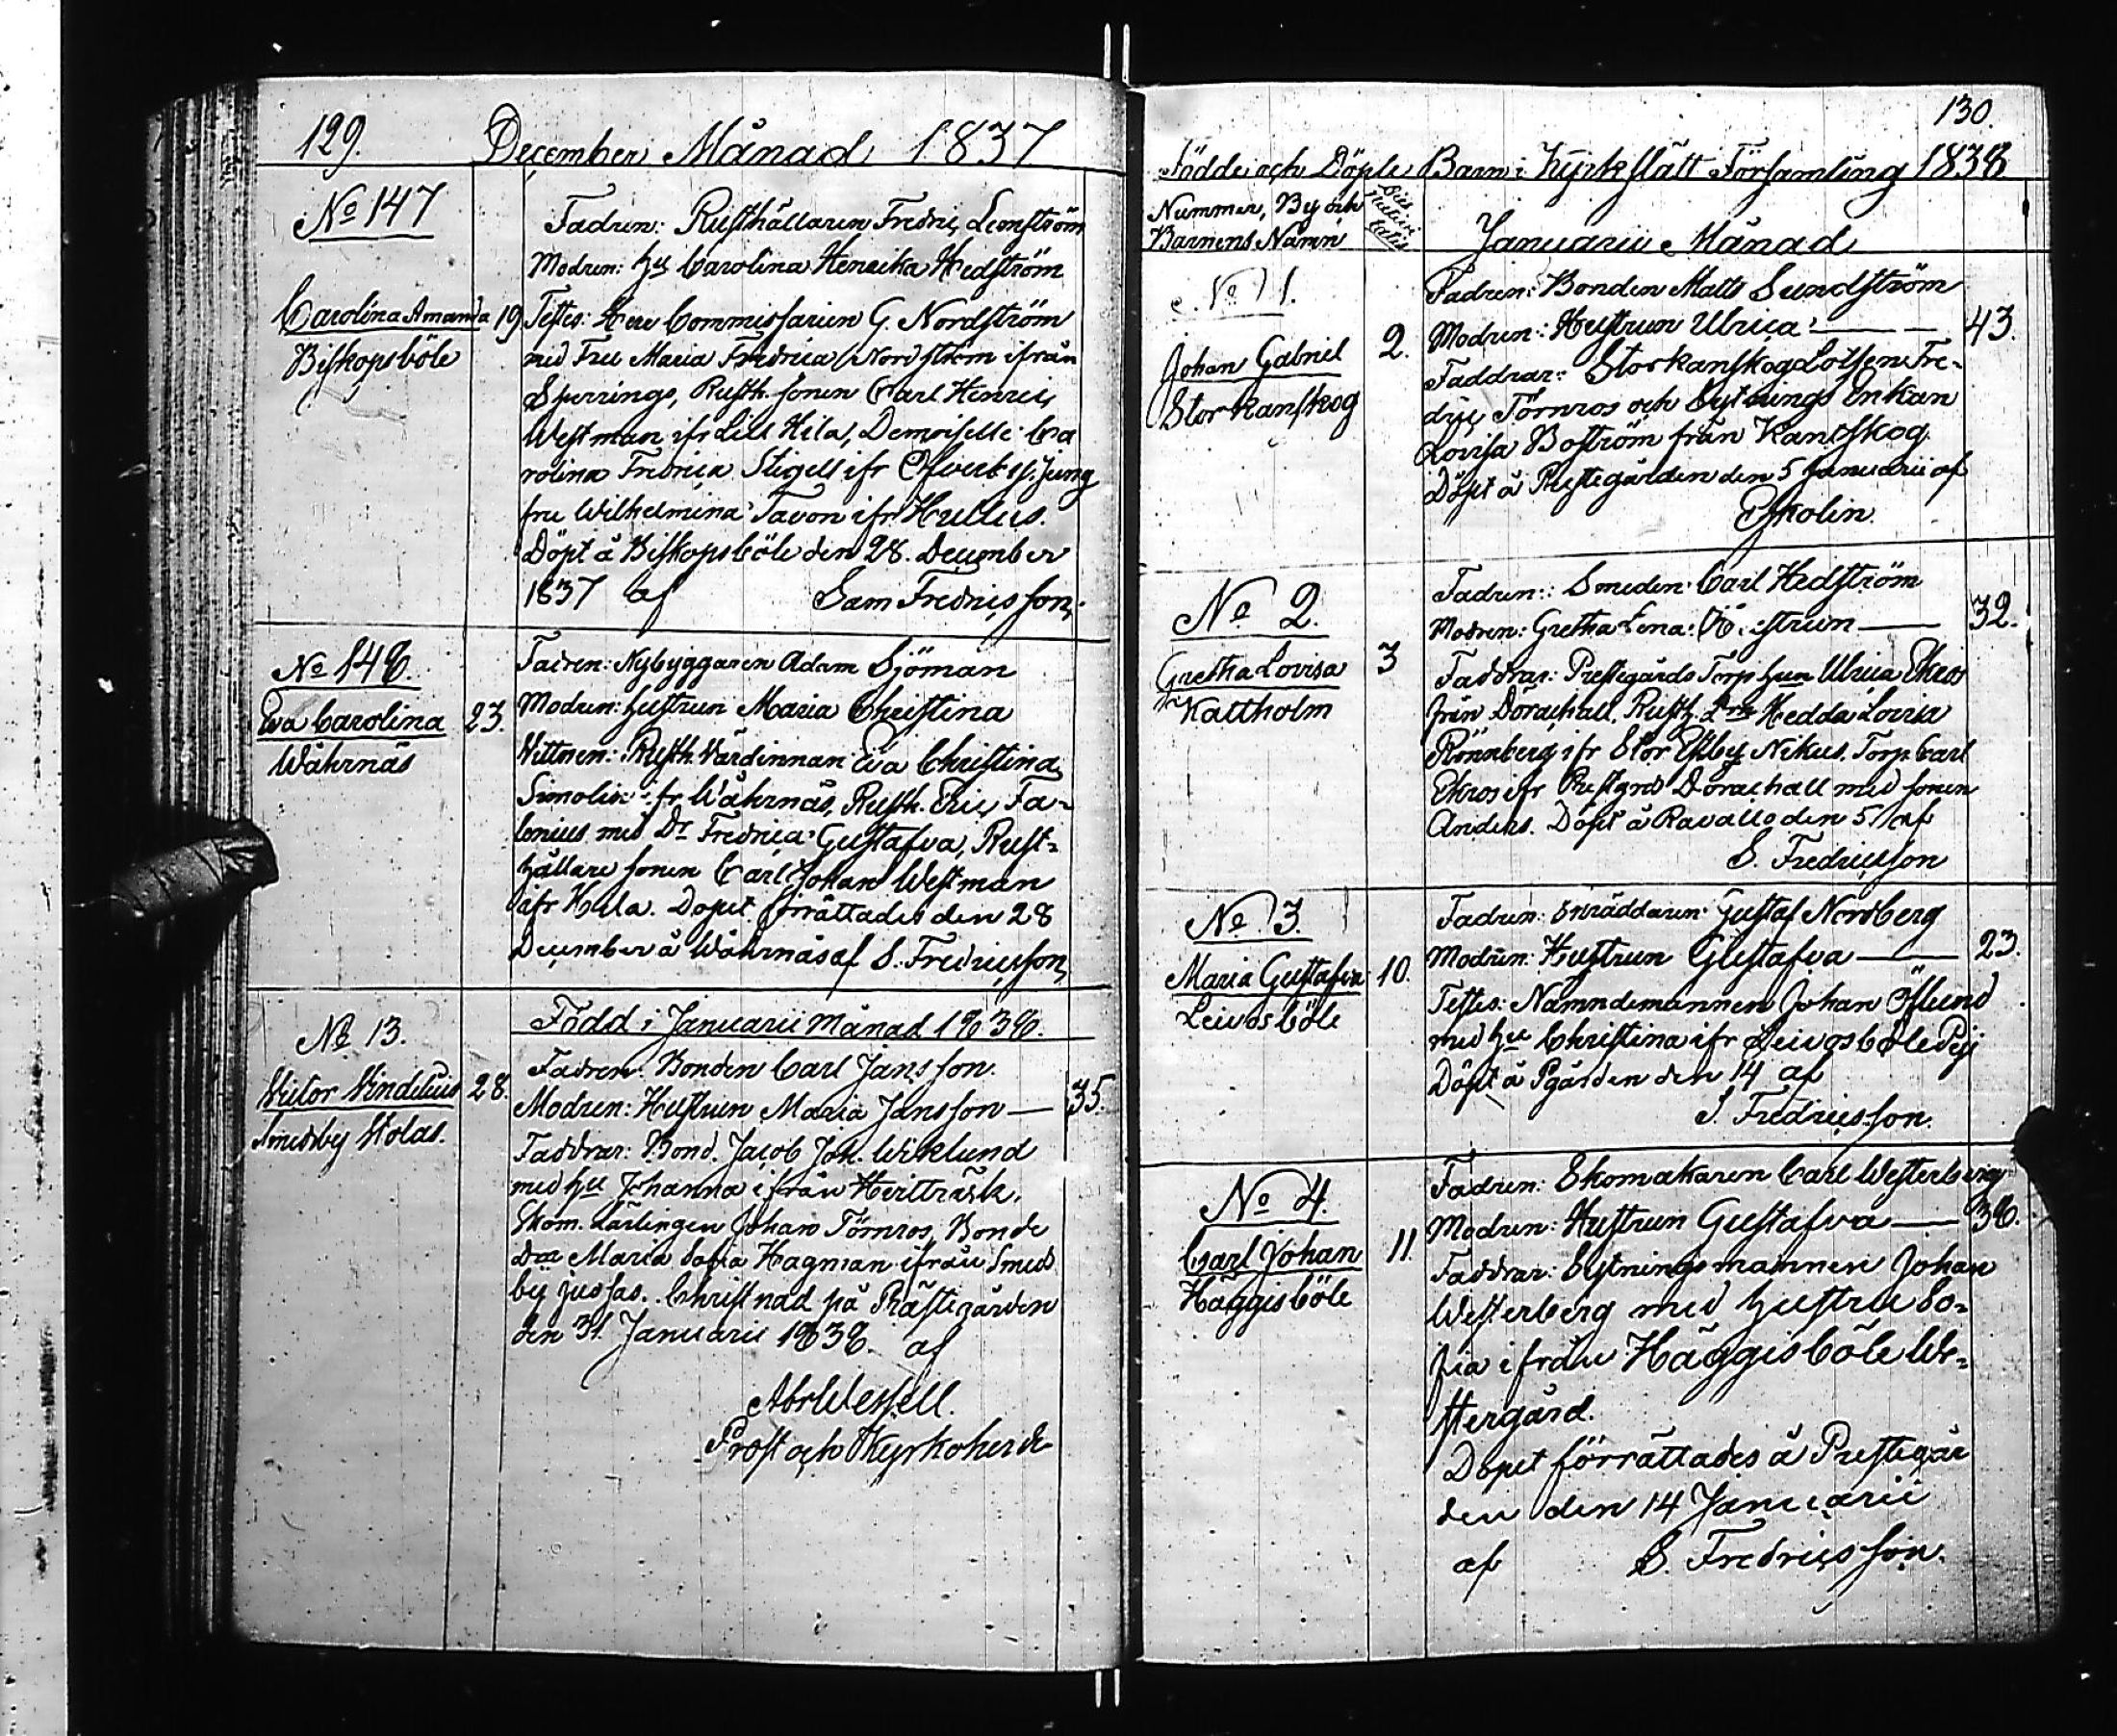 129. December Månad 1837
No 147
Carolina Amanda 19
Biskopsböle
Fadren: Rusthållaren Fredric Lemström
Modren: Hu Carolina Henrika Hedström
Testes: Herr Commissarien G. Nordström
med Fru Maria Fredrica Nordström ifrån
Sperrings, Rusth. sonen Carl Henric
Westman ifr Lill Hila, Demoiselle Ca
rolina Fredrica Stigell ifr jung
fru Wilhelmina Tavon ifr Hullus.
Döpt å Biskopsböle den 28. December
1837 af Sam Fredricsson.
No 148.
Eva Carolina 23.
Wåhrnäs
Fadren: Nybyggaren Adam Sjöman
Modren: hustrun Maria Christina
Vittnen: Rusth. Värdinnan Eva Christina
Simolin ifr Wåhrnäs, Rusth. Eric Fa-
lenius med Dr Fredrica Gustafva, Rust-
hållare sonen Carl Johan Westman
ifr Hila. Dopet förrättades den 28
December å Wåhrnäs af S. Fredricsson
No 13.
Victor Vindicius 28.
Smedsby Stolas.
Född i Januarii månad 1838.
Fadren: Bonden Carl Jansson.
Modren: Hustrun Maria Jansson — 35.
Faddrar: Bond. Jacob Joh. Wiklund
med hu Johanna ifrån Hvitträsk.
Skom. Lärlingen Johan Törnros, Bonde
Dtr Maria Sofia Hagman ifrån Smeds
by Jussas. Christnad på Prästegården
den 31. Januarii 1838. af
Abr Wessell.
Prost och Kyrkoherde
130.
Födde och Döpte Barn i Kyrkslätt Församling 1838
Nummer, By och
Barnens Namn
Dies
Nativi
tatis
Januarii Månad
No 1.
Johan Gabriel 2.
Stor Kanskog
Fadren: Bonden Matts Sundström
Modren: Hustrun Ulrica — 43.
Faddrar: Storkanskog Lotsen Fre-
dric Törnros och Sytnings Enkan
Lovisa Boström från Kanskog
Döpt å Prestegården den 5 Januarii af
Ekolin
No 2.
Gretha Lovisa 3
Kattholm
Fadren: Smeden Carl Hedström
Modren: Gretha Lena — 32.
Faddrar: Prestegårds Torp hun Ulrica Ekros
från Dorachall, Rusth. Dtr Hedda Lovisa
Rönnberg ifr Stor Ekby Nikus. Torp. Carl
Ekros ifr Prestgrd Dorachall med sonen
Anders. Döpt å Ravalls den 5. af
S. Fredricsson
No 3.
Maria Gustafva 10.
Leivosböle
Fadren: Skräddaren Gustaf Nordberg
Modren: Hustrun Gustafva — 23.
Testes: Nämndemannen Johan Öflund
med hu Christina ifr Leivosböle
Döpt å Pgården den 14 af
S. Fredricsson.
No 4.
Carl Johan 11.
Häggisböle
Fadren: Skomakaren Carl Westerberg
Modren: Hustrun Gustafva — 38.
Faddrar: Sytningsmannen Johan
Westerberg med hustru So-
fia ifrån Häggisböle We-
stergård.
Dopet förrättades å Prestegår
den den 14 Januarii
af S. Fredricsson.